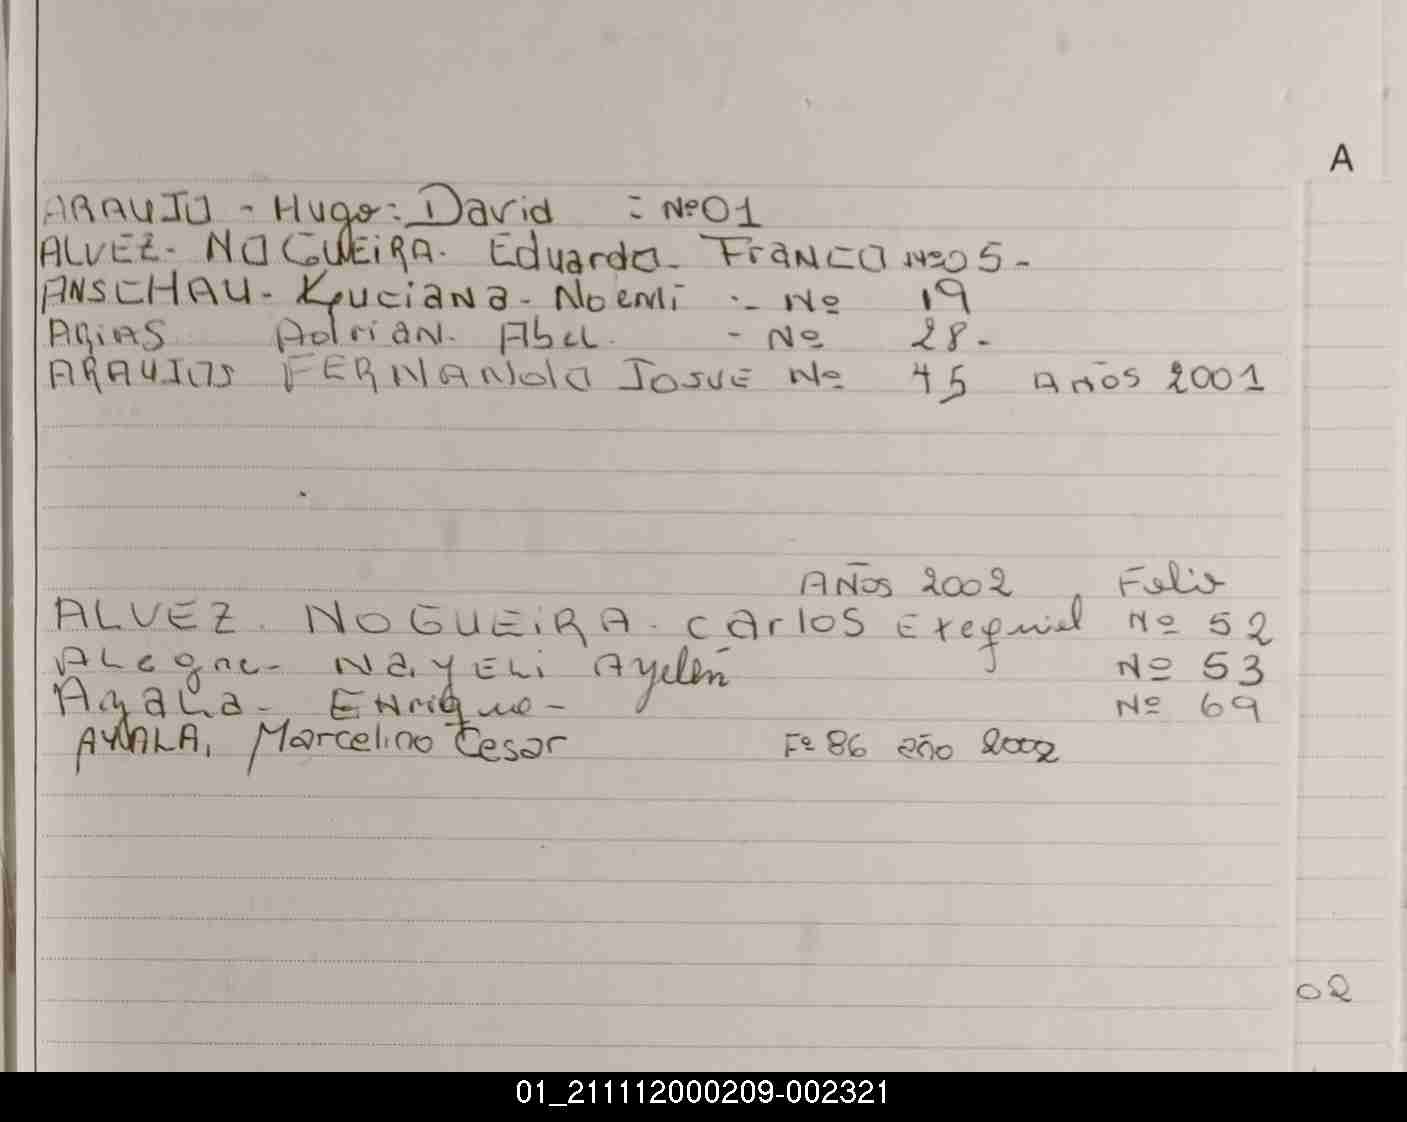 A
ARAUJO - Hugo: David : Nº01
ALVEZ - NOGUEIRA. Eduardo - FrANCO Nº05 -
ANSCHAU - Luciana - Noemi - Nº 19
ARiAS Adrian. Abel. - Nº 28 -
ARAUJOS FERNANDO JOSUE Nº 45 AñOS 2001
AÑOS 2002 Folio
ALVEZ. NOGUEiRA. CArlOS Exequiel Nº 52
ALegre - NaYELi Ayelén Nº 53
AyaLa - ENrique - Nº 69
AYALA, Marcelino Cesar Fº 86 año 2002
02
01_211112000209-002321